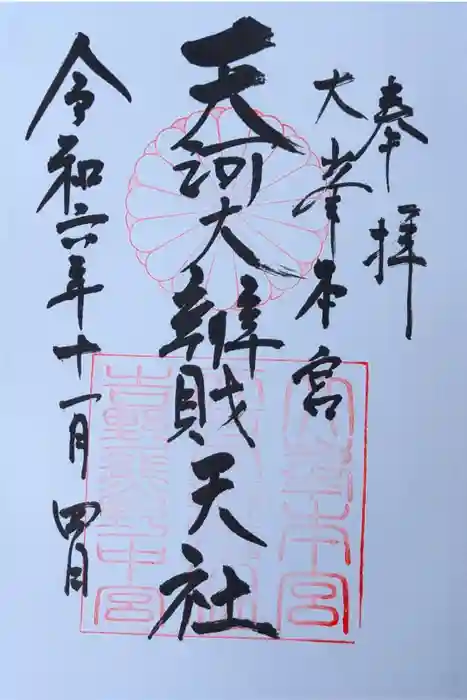 奉拝
大峯本宮
天河大辨財天社
令和六年十一月四日